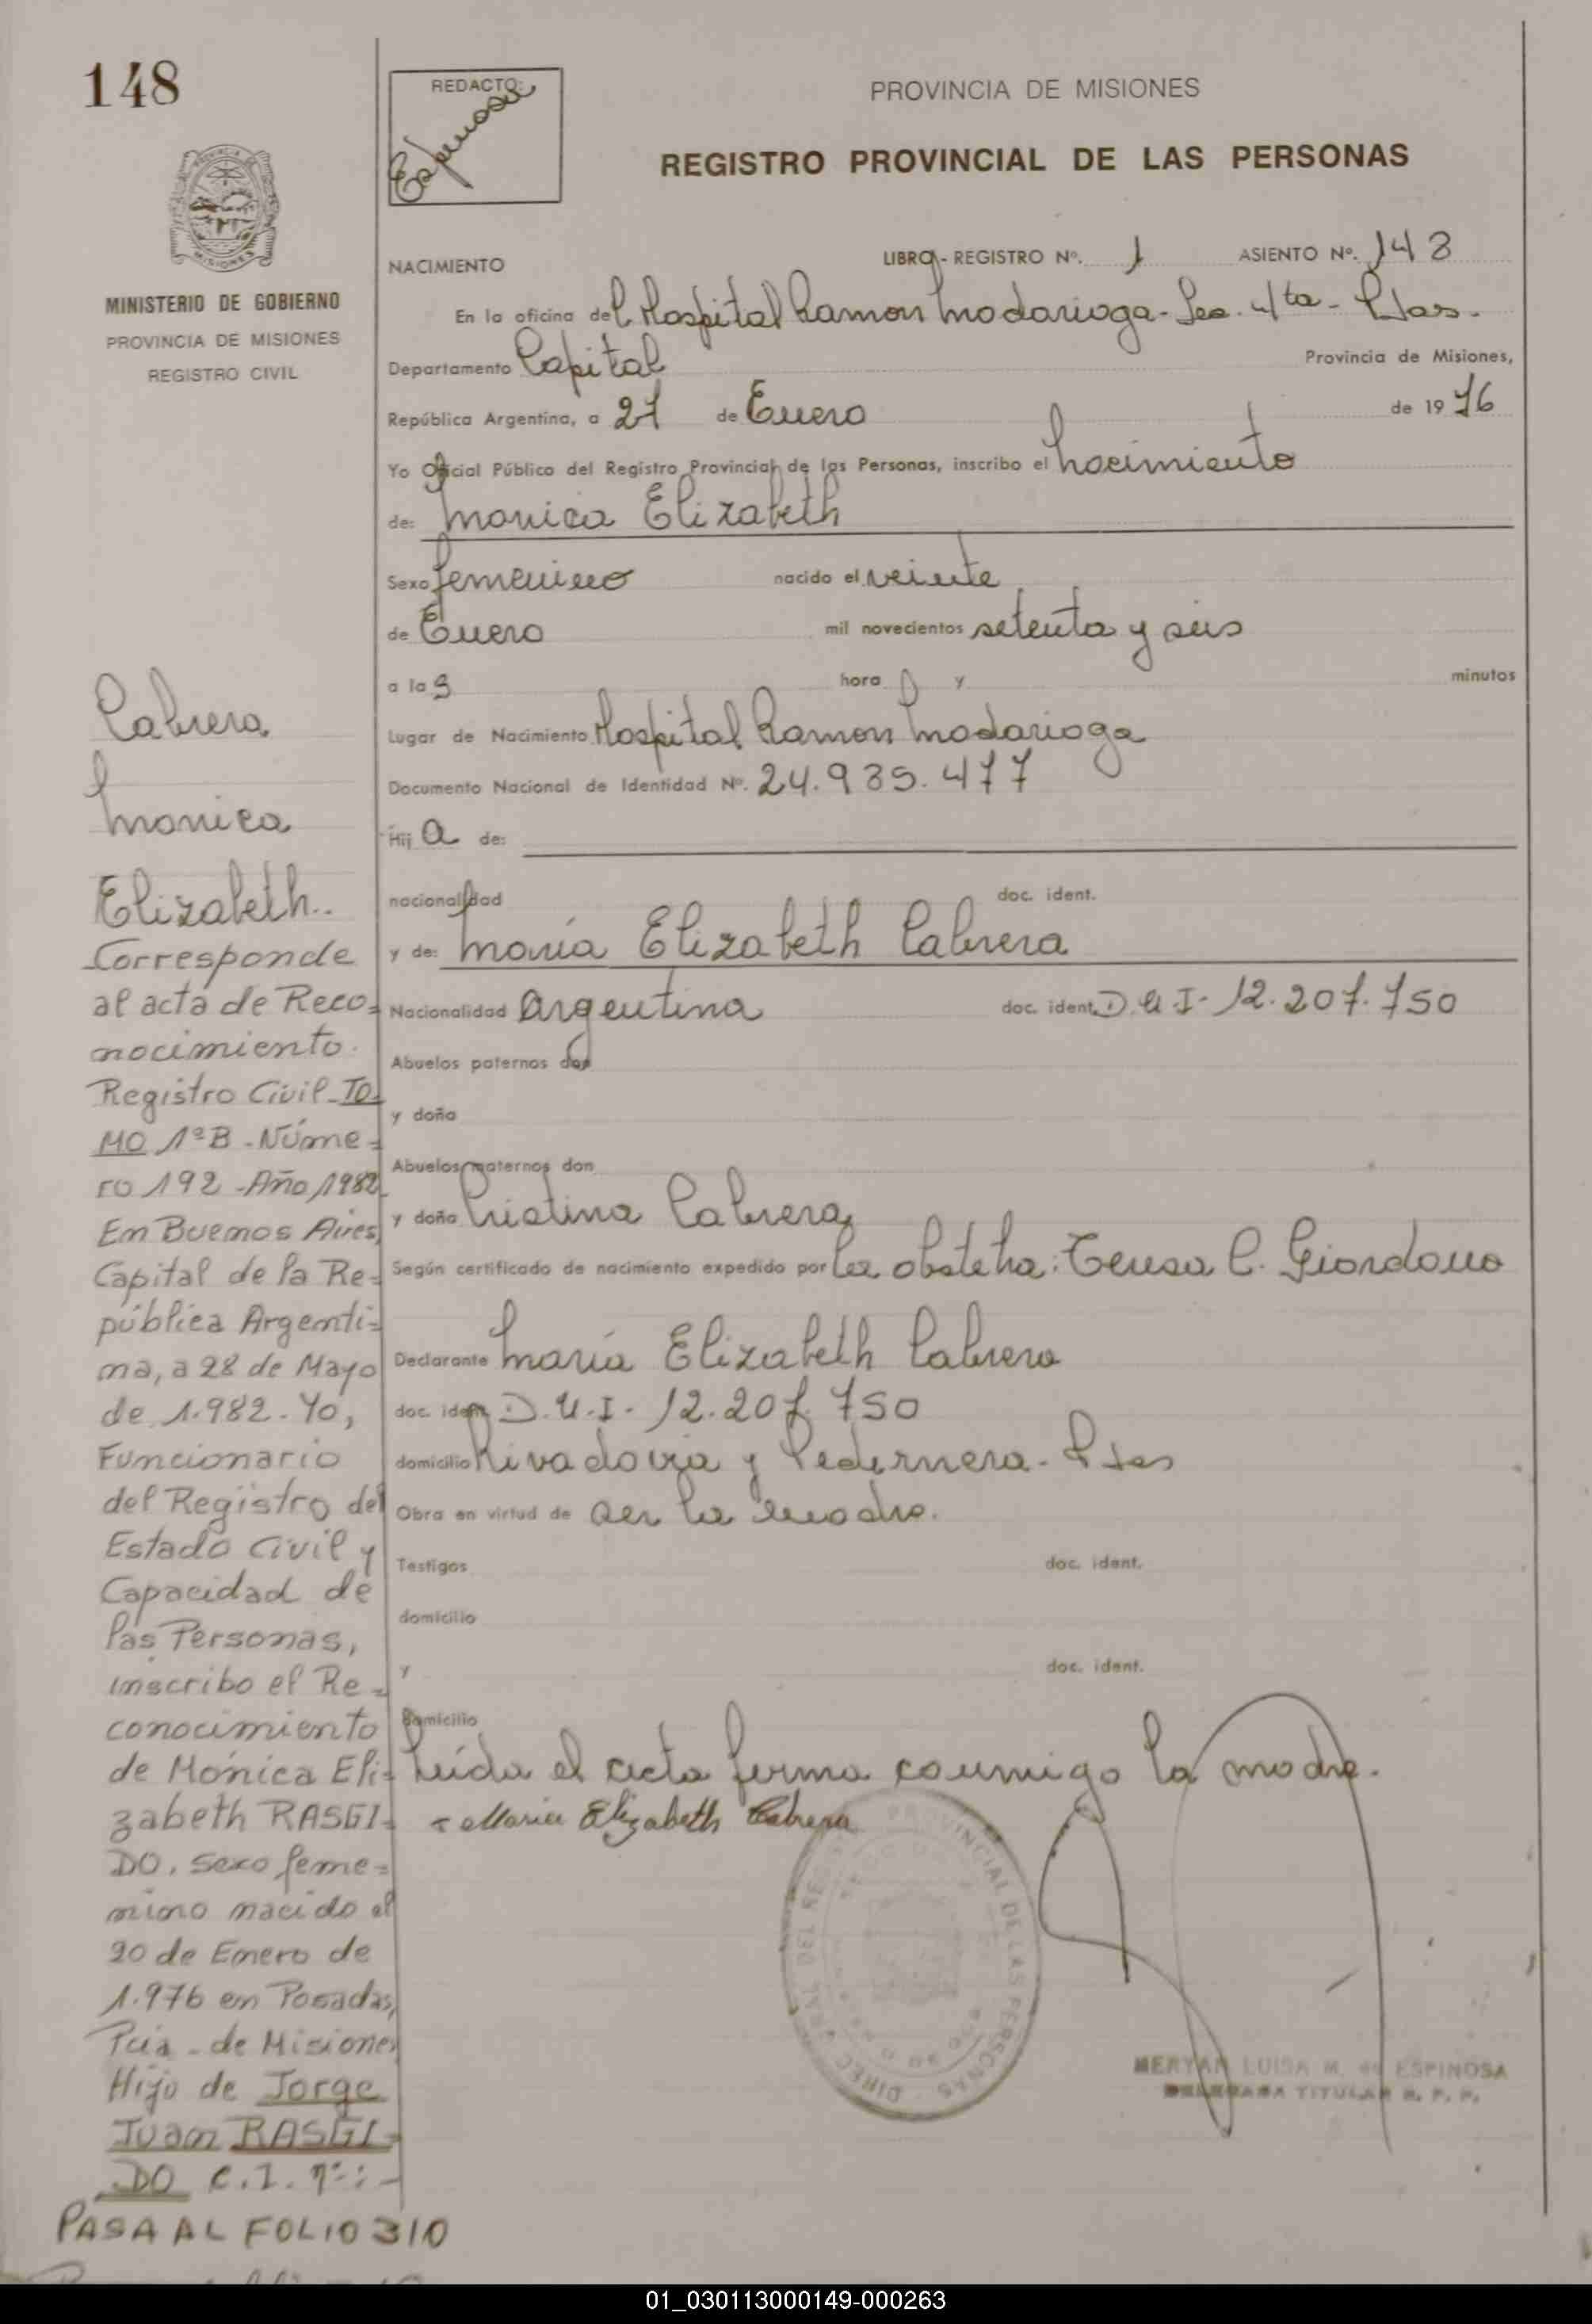 148
REDACTO:
Espinosa
PROVINCIA DE MISIONES
REGISTRO PROVINCIAL DE LAS PERSONAS
MISIONES
MINISTERIO DE GOBIERNO
PROVINCIA DE MISIONES
REGISTRO CIVIL
NACIMIENTO
LIBRO - REGISTRO Nº. 1 ASIENTO Nº. 148
En la oficina del Hospital Ramon Madariaga - Sec. 4ta - Pdas.
Departamento Capital Provincia de Misiones,
República Argentina, a 27 de Enero de 1976
Yo Oficial Público del Registro Provincial de las Personas, inscribo el nacimiento
de: Monica Elizabeth
Sexo femenino nacido el veinte
de Enero mil novecientos setenta y seis
a la 9 hora y minutos
Lugar de Nacimiento Hospital Ramon Madariaga
Documento Nacional de Identidad Nº. 24.939.477
Hij a de:
nacionalidad doc. ident.
y de: María Elizabeth Cabrera
Nacionalidad Argentina doc. ident. D.U.I- 12.207.750
Abuelos paternos don
y doña
Abuelos maternos don
y doña Cristina Cabrera
Según certificado de nacimiento expedido por la obstetra: Teresa C. Giordano
Declarante María Elizabeth Cabrera
doc. ident. D.U.I- 12.207.750
domicilio Rivadavia y Pedernera - Pdas
Obra en virtud de ser la madre.
Testigos doc. ident.
domicilio
y doc. ident.
domicilio
Leída el acta firma conmigo la madre.
Maria Elizabeth Cabrera
PROVINCIAL DE LAS PERSONAS
MERYAN LUISA M. de ESPINOSA
DELEGADA TITULAR R. P. P.
Cabrera
Monica
Elizabeth..
Corresponde
al acta de Reco=
nocimiento.
Registro Civil - TO=
MO 1ºB - Núme=
ro 192 - Año 1982
En Buenos Aires,
Capital de la Re=
pública Argenti=
na, a 28 de Mayo
de 1.982 - Yo,
Funcionario
del Registro del
Estado Civil y
Capacidad de
las Personas,
inscribo el Re=
conocimiento
de Mónica Eli=
zabeth RASGI=
DO. sexo feme=
nino nacido el
20 de Enero de
1.976 en Posadas,
Pcia - de Misiones
Hijo de Jorge
Juan RASGI=
DO C.I. nº: -
PASA AL FOLIO 310
01_030113000149-000263